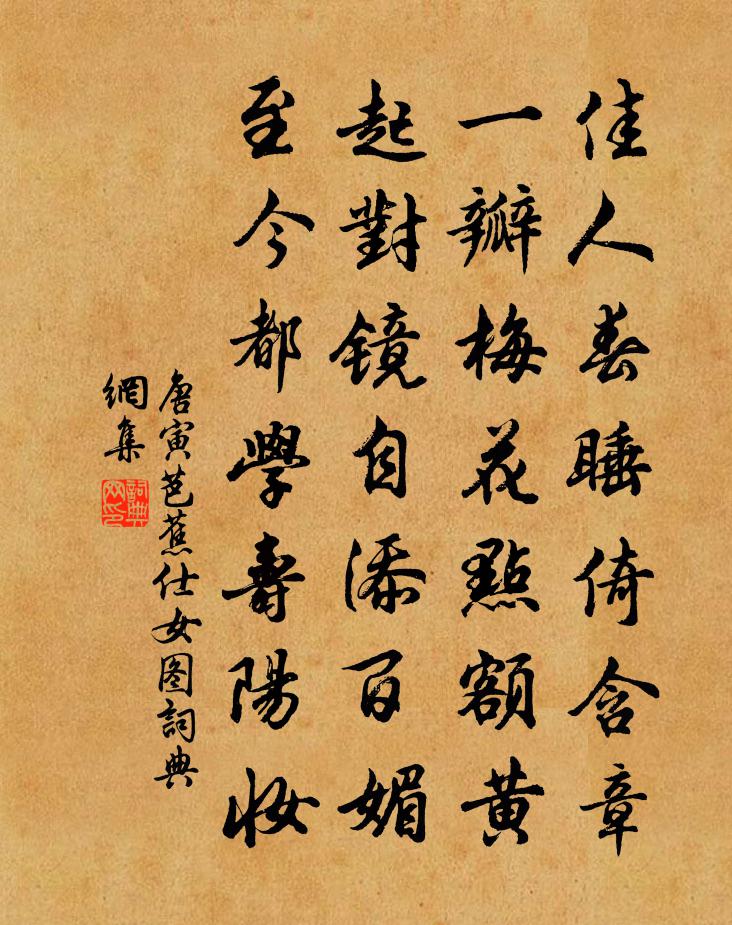 佳人春睡倚含章
一瓣梅花點額黄
起對鏡自添百媚
至今都學壽陽妝
唐寅芭蕉仕女图詞典
網集
詞典
网印